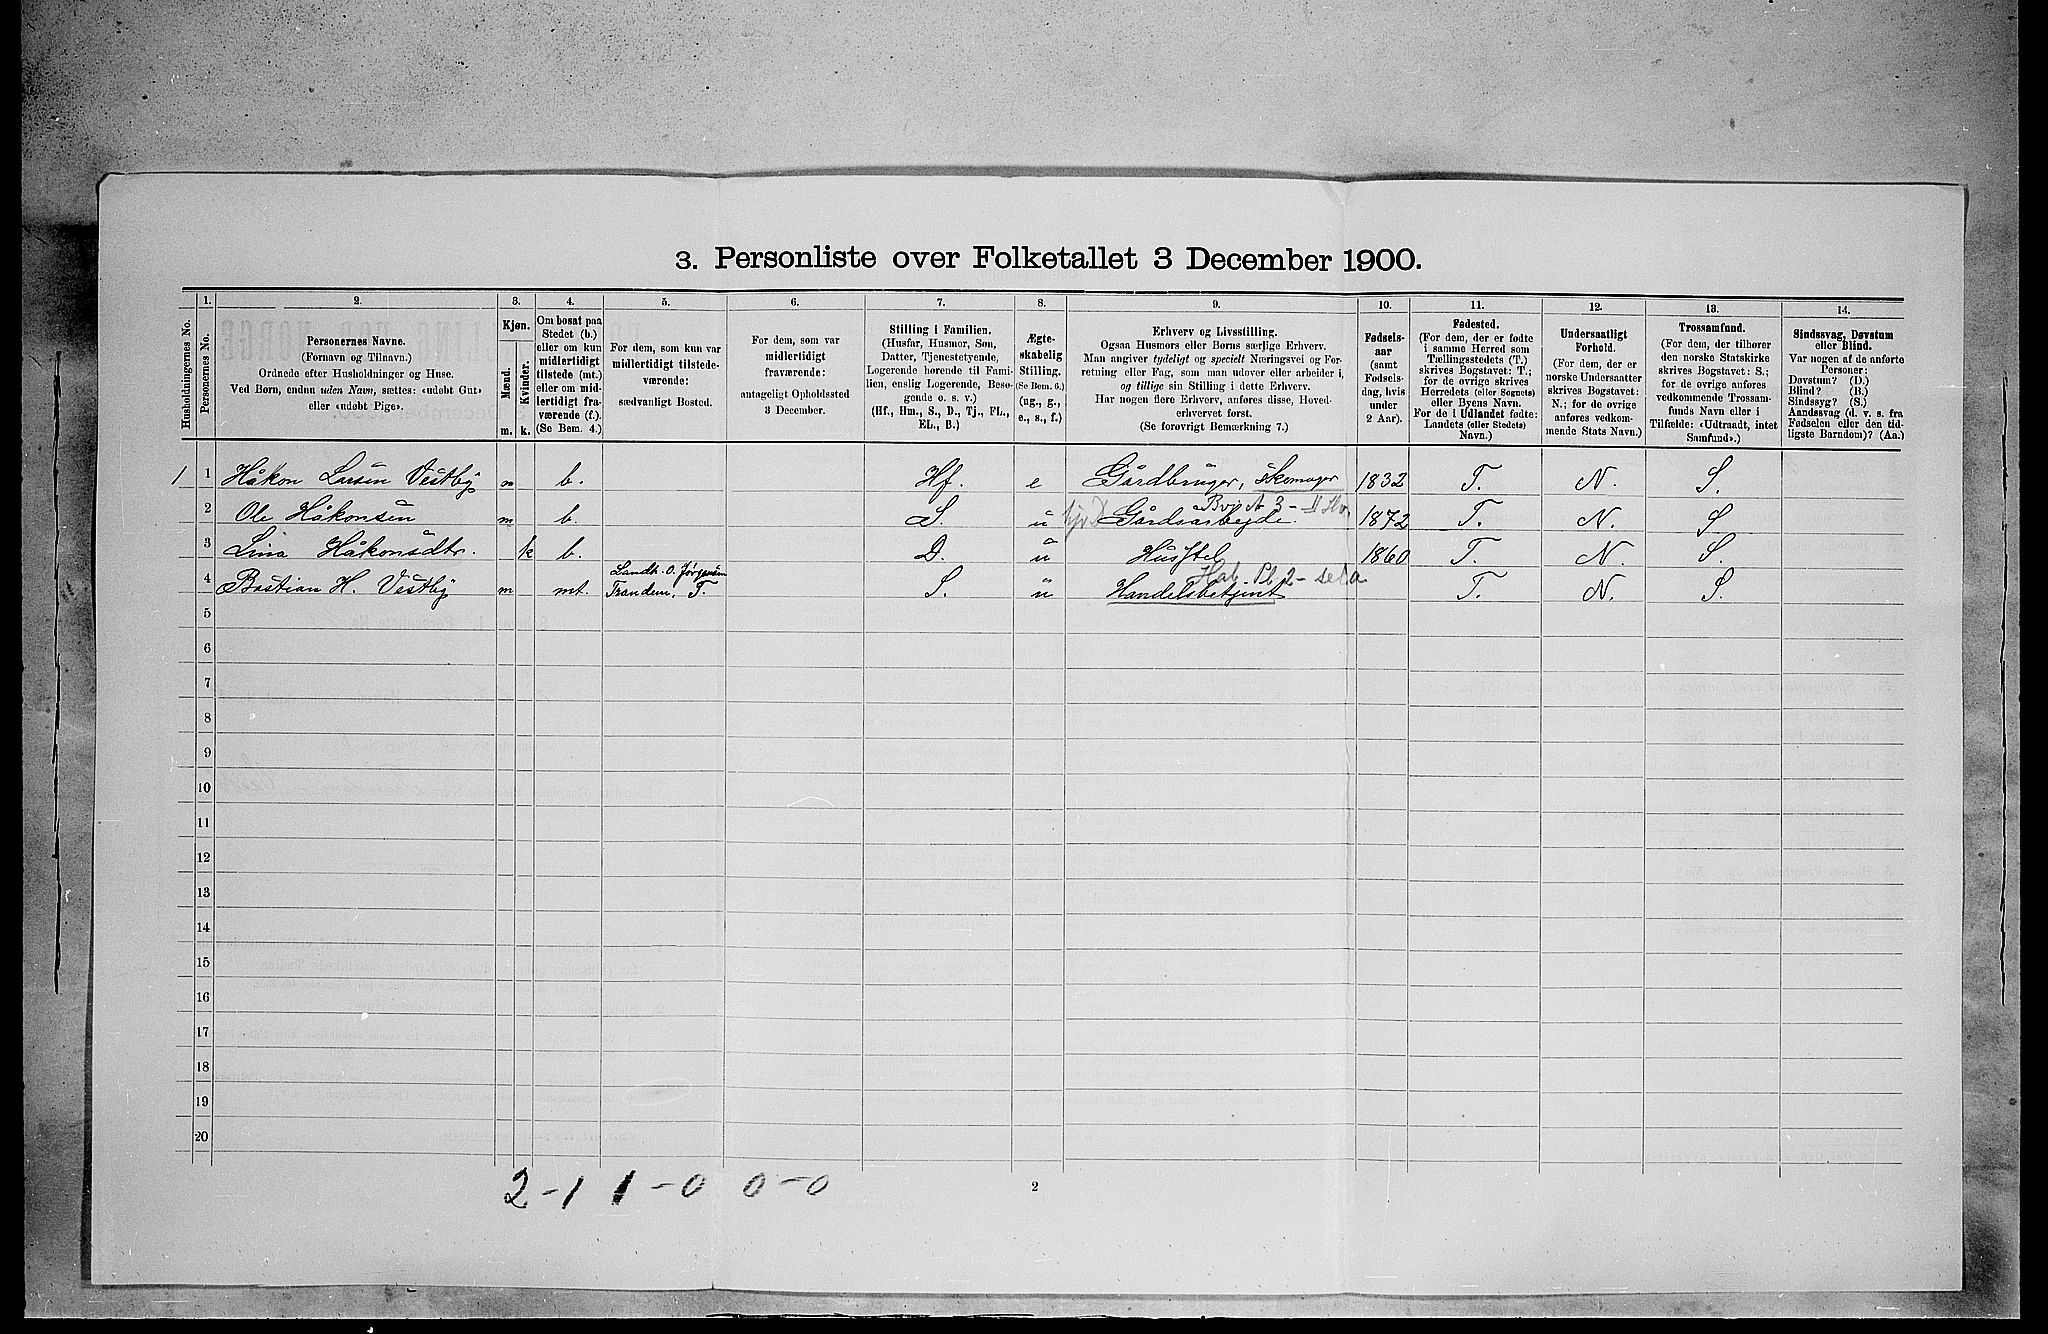 3. Personliste over Folketallet 3 December 1900.
1. 2. 3. 4. 5. 6. 7. 8. 9. 10. 11. 12. 13. 14.
Husholdningernes No.
Personernes No.
Personernes Navne.
(Fornavn og Tilnavn.)
Ordnede efter Husholdninger og Huse.
Ved Børn, endnu uden Navn, sættes: «udøbt Gut»
eller «udøbt Pige».
Kjøn.
Mænd.
Kvinder.
m. k.
Om bosat paa
Stedet (b.)
eller om kun
midlertidigt
tilstede (mt.)
eller om mid-
lertidigt fra-
værende (f.).
(Se Bem. 4.)
For dem, som kun var
midlertidigt tilstede-
værende:
sædvanligt Bosted.
For dem, som var
midlertidigt
fraværende:
antageligt Opholdssted
3 December.
Stilling i Familien.
(Husfar, Husmor, Søn,
Datter, Tjenestetyende,
Logerende hørende til Fami-
lien, enslig Logerende, Besø-
gende o. s. v.)
(Hf., Hm., S., D., Tj., FL.,
EL., B.)
Ægte-
skabelig
Stilling.
(Se Bem. 6.)
(ug., g.,
e., s., f.)
Erhverv og Livsstilling.
Ogsaa Husmors eller Børns særlige Erhverv.
Man angiver tydeligt og specielt Næringsvei og For-
retning eller Fag, som man udøver eller arbeider i,
og tillige sin Stilling i dette Erhverv.
Har nogen flere Erhverv, anføres disse, Hoved-
erhvervet først.
(Se forøvrigt Bemærkning 7.)
Fødsels-
aar
(samt
Fødsels-
dag, hvis
under
2 Aar).
Fødested.
(For dem, der er fødte
i samme Herred som
Tællingsstedets (T.)
skrives Bogstavet: T.;
for de øvrige skrives
Herredets (eller Sognets)
eller Byens Navn.
For de i Udlandet fødte:
Landets (eller Stedets)
Navn.)
Undersaatligt
Forhold.
(For dem, der er
norske Undersaatter
skrives Bogstavet:
N.; for de øvrige
anføres vedkom-
mende Stats Navn.)
Trossamfund.
(For dem, der tilhører
den norske Statskirke
skrives Bogstavet: S.;
for de øvrige anføres
vedkommende Trossam-
funds Navn eller i
Tilfælde: «Udtraadt, intet
Samfund».)
Sindssvag, Døvstum
eller Blind.
Var nogen af de anførte
Personer:
Døvstum? (D.)
Blind? (B.)
Sindssyg? (S.)
Aandssvag (d. v. s. fra
Fødselen eller den tid-
ligste Barndom)? (Aa.)
1 1 Håkon Larsen Vestby m b. Hf. e Gårdbruger, skomager 1832 T. N. S.
2 Ole Håkonsen m b. S. u Gårdsarbejde. 1872 T. N. S
3 Lina Håkonsdtr. k b. D. u Husstel 1860 T. N. S.
4 Bastian H. Vestby m mt. Landh. O. Jørgensen
Trandem. T. S. u Handelsbetjent T. N. S.
5
6
7
8
9
10
11
12
13
14
15
16
17
18
19
20
2-1 1-0 0-0
2